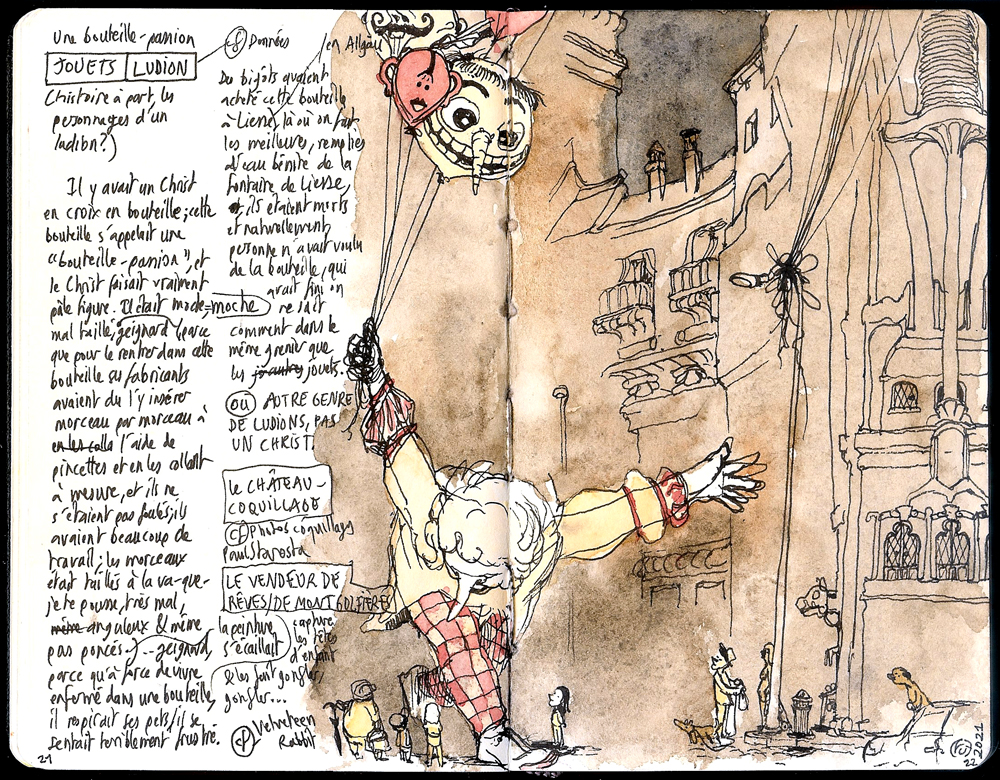 Une bouteille-passion
JOUETS LUDION
(histoire à part, les
personnages d'un
ludion?)
Il y avait un Christ
en croix en bouteille; cette
bouteille s'appelait une
"bouteille-passion", et
le Christ faisait vraiment
pâle figure. Il était moche = moche
mal taillé, geignard (parce
que pour le rentrer dans cette
bouteille ses fabricants
avaient du l'y insérer
morceau par morceau à
en les colla l'aide de
pincettes et en les collant
à mesure, et ils ne
s'étaient pas foulés, ils
avaient beaucoup de
travail; les morceaux
était taillés à la va-que-
j'te pousse, très mal,
même anguleux & même
pas poncés)--geignard,
parce qu'à force de vivre
enfermé dans une bouteille,
il respirait ses pets/il se
sentait terriblement frustré.
21
cf Données
en Allgäu
Des bigots avaient
acheté cette bouteille
à Liesse, là où on fait
les meilleures, remplies
d'eau bénite de la
fontaine de Liesse,
ils étaient morts
et naturellement
personne n'avait voulu
de la bouteille, qui
avait fini on
ne sait
comment dans le
même grenier que
les jouets.
OU AUTRE GENRE
DE LUDIONS, PAS
UN CHRIST.
LE CHÂTEAU-
COQUILLAGE
cf Photos coquillages
Paul Starosta
LE VENDEUR DE
RÊVES/DE MONTGOLFIÈRES
la peinture
s'écaillait
capture
les têtes
d'enfant
& les fait gonfler,
gonfler...
cf Velveteen
Rabbit
22 2021